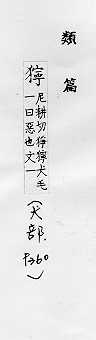 類篇
獰 尼耕切狰獰犬毛
一曰惡也文一
(犬部. P360)